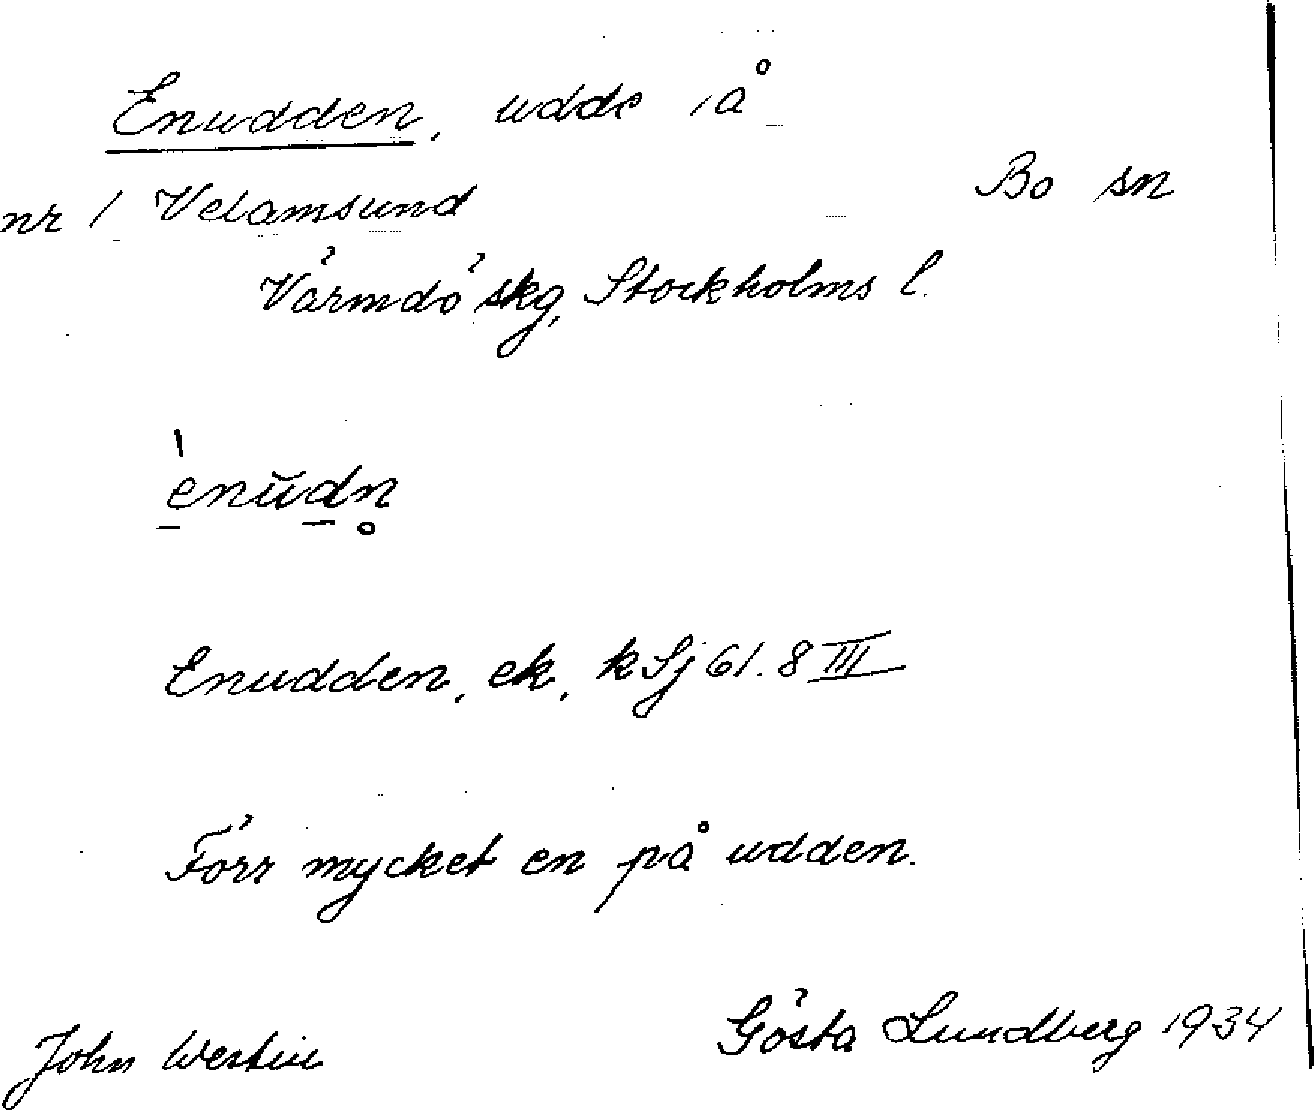 Enudden, udde i å
Bo sn
nr 1 Velamsund
Värmdö skg, Stockholms l.
ènŭdn̥
Enudden, ek, k Sj 61.8 III
Förr mycket en på udden.
Gösta Lundberg 1934
John Westin